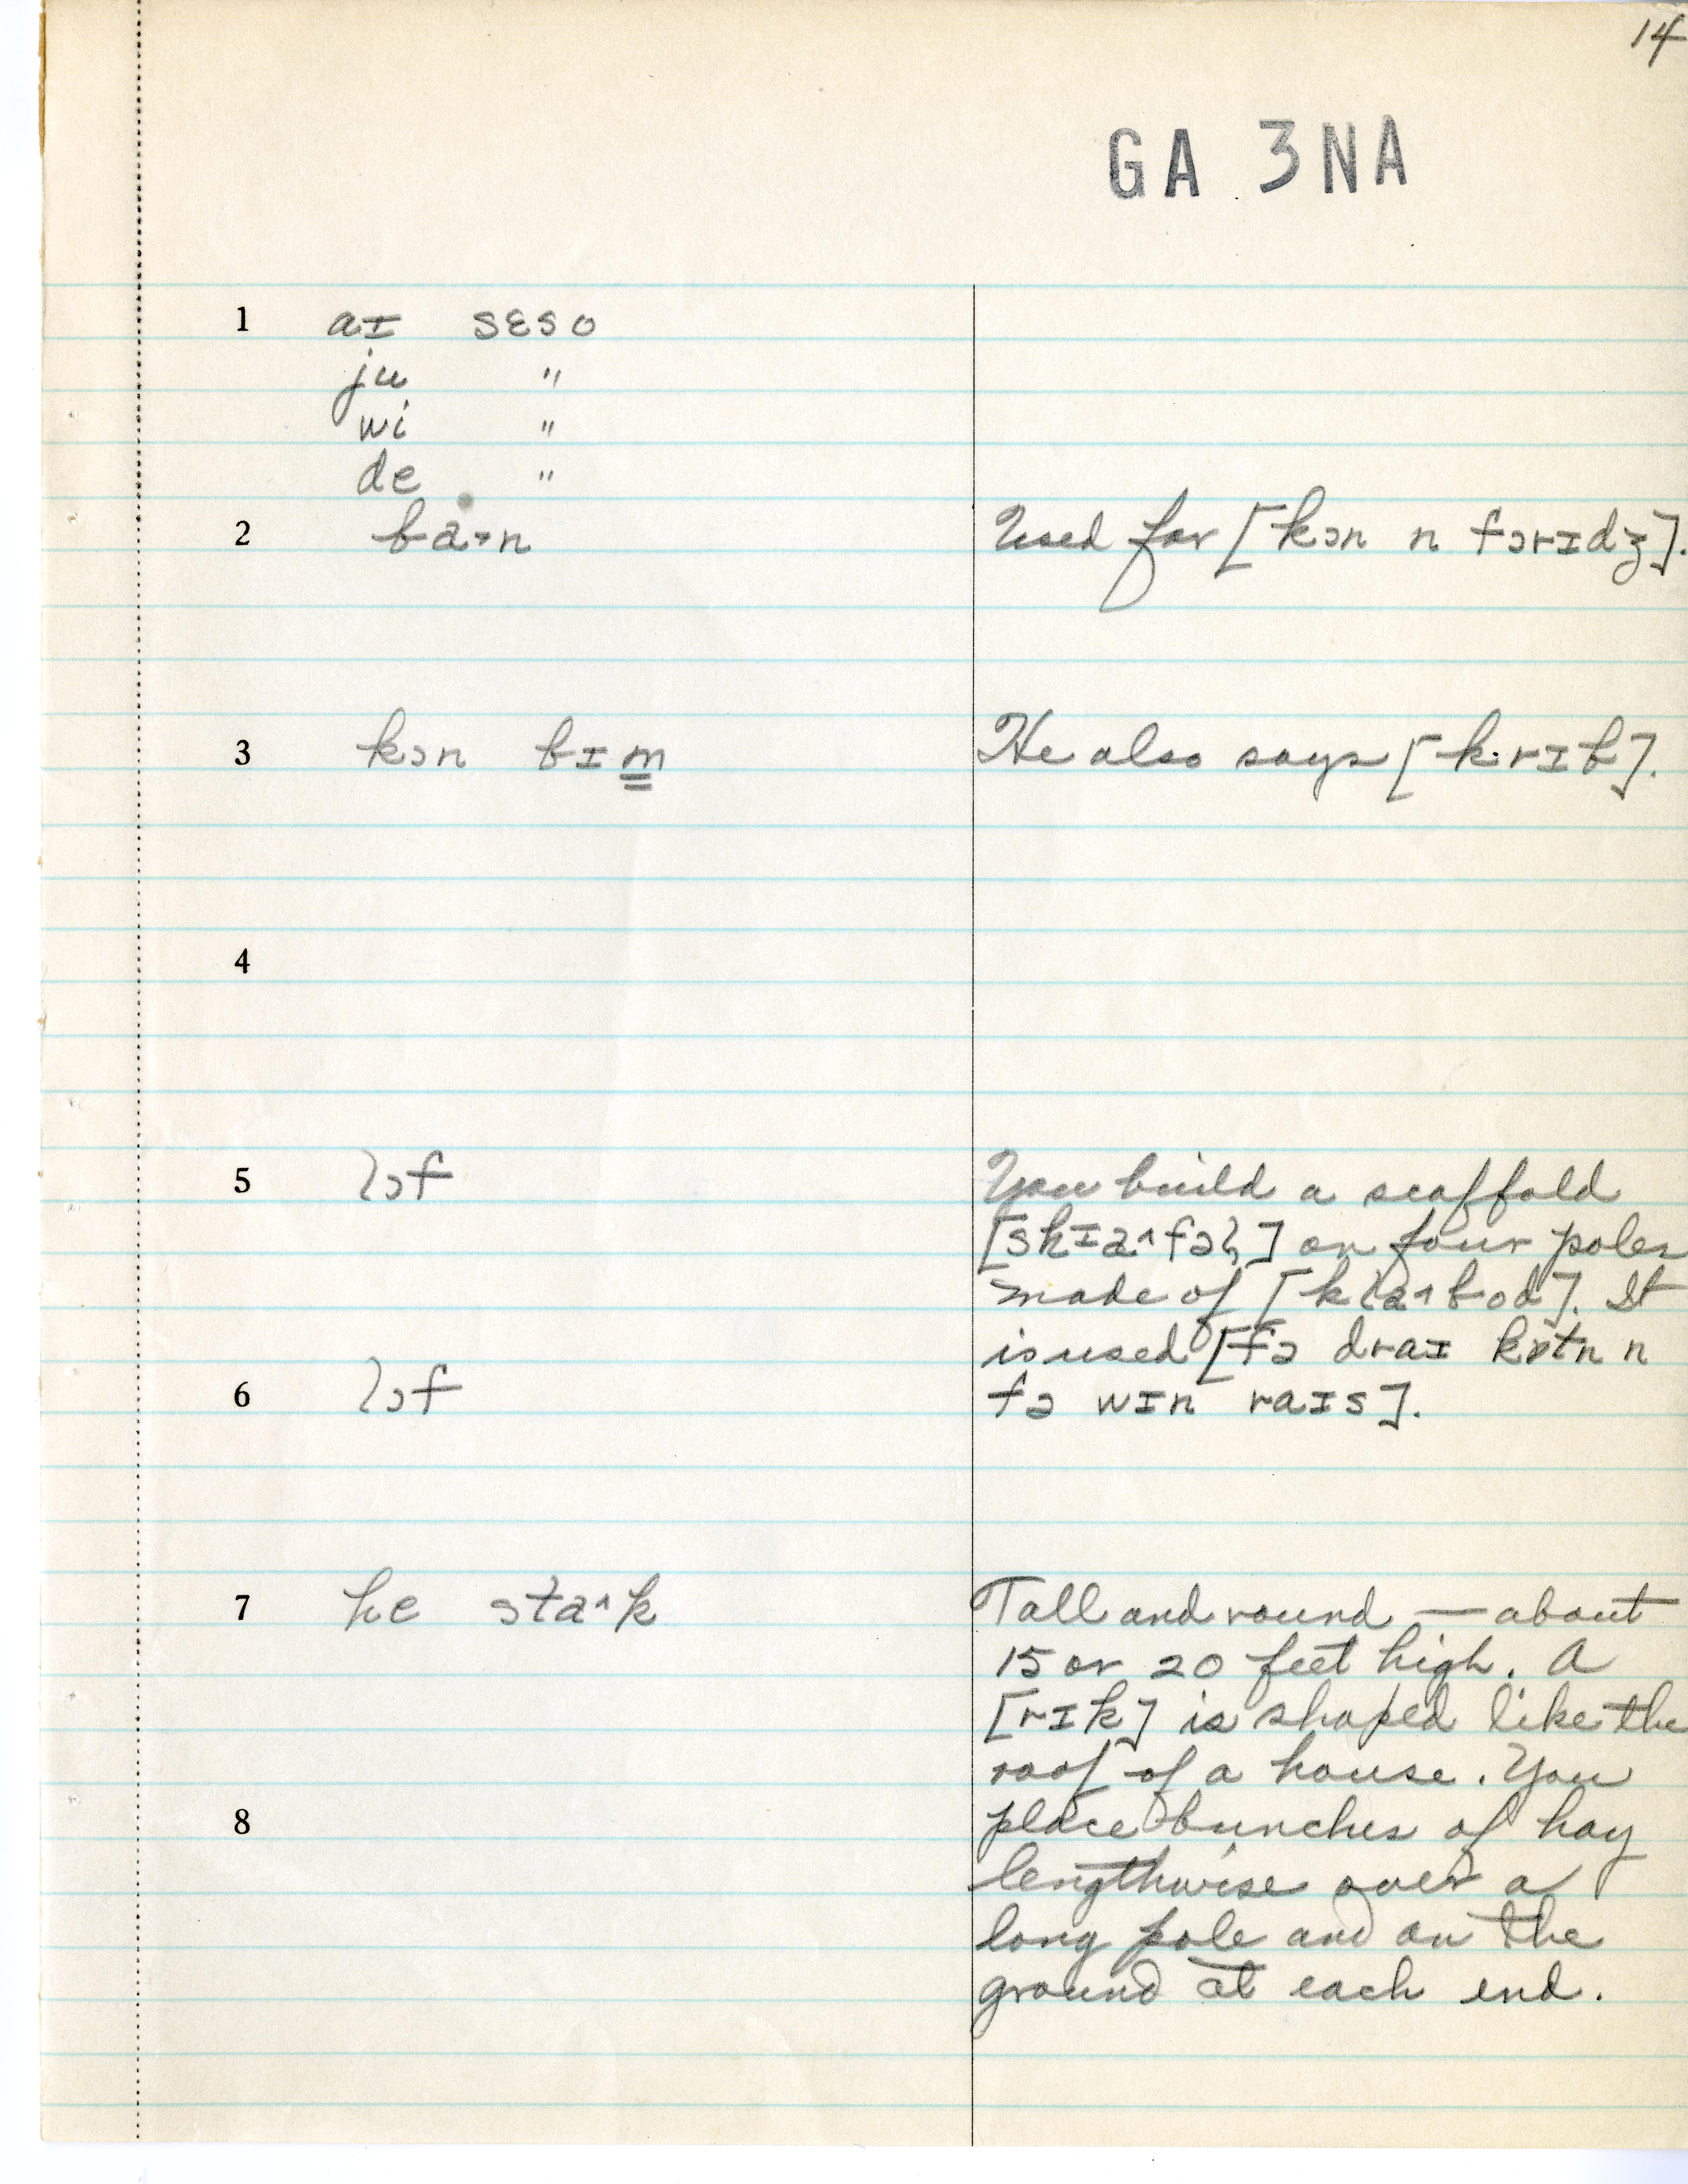 14
GA 3NA
1 aɪ sɛso
ju "
wi "
de "
2 ba˒n
Used for [kɔn n fɔrɪdʒ].
3 kɔn bɪm̳
He also says [k:rɪb].
4
5 lɔf
You build a scaffold
on four poles
made of It
is used [fə draɪ n
6 lɔf
fə wɪn raɪs].
7 he sta˄k
Tall and round — about
15 or 20 feet high. A
[rɪk] is shaped like the
roof of a house. You
8
place bunches of hay
lengthwise over a
long pole and on the
ground at each end.